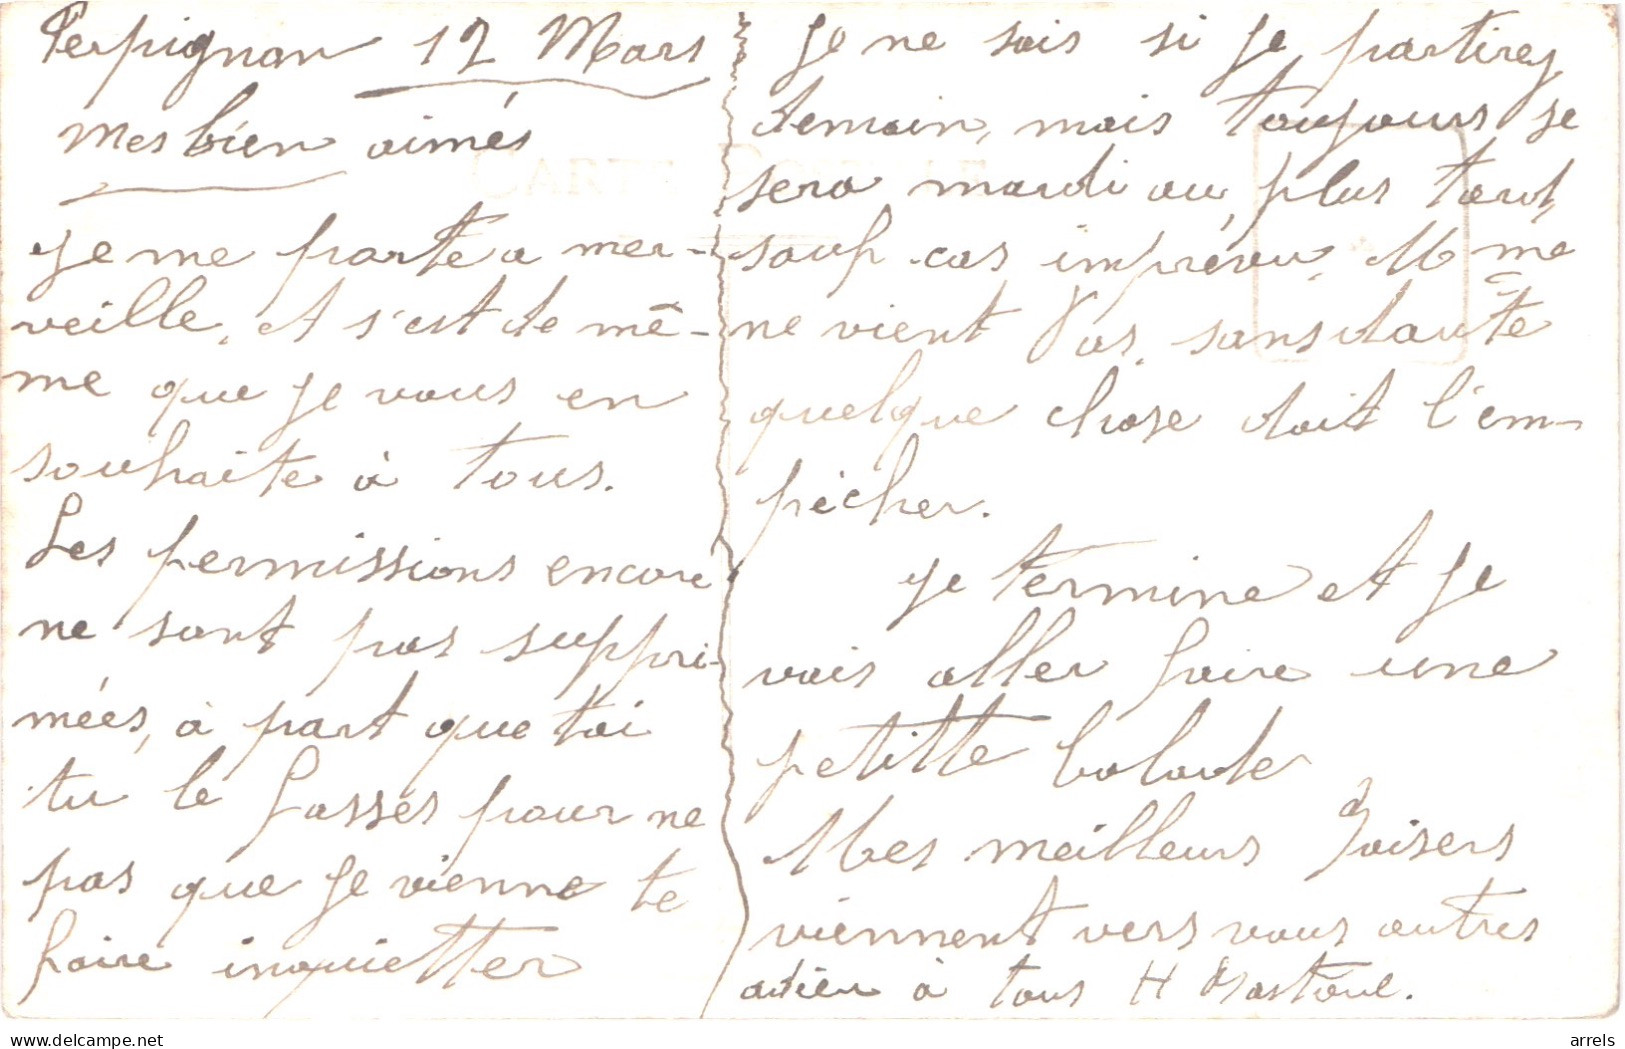 Perpignan 12 Mars
Mes bien aimés
je me porte a mer-
veille, et s'est de mê-
me que je vous en
souhaite à tous.
Les permissions encore
ne sont pas suppri-
mées, à part que toi
tu le fasses pour ne
pas que je vienne te
faire inquietter
Je ne sais si je partirey
demain, mais toujours se
sera mardi au plus tard,
sauf cas imprévu. Mme
ne vient pas, sans doute
quelque chose doit l'em-
pêcher.
je termine et je
vais aller faire une
petitte balade
Mes meilleurs Baisers
viennent vers vous autres
adieu à tous H
CARTE POSTALE
delcampe.net
arrels